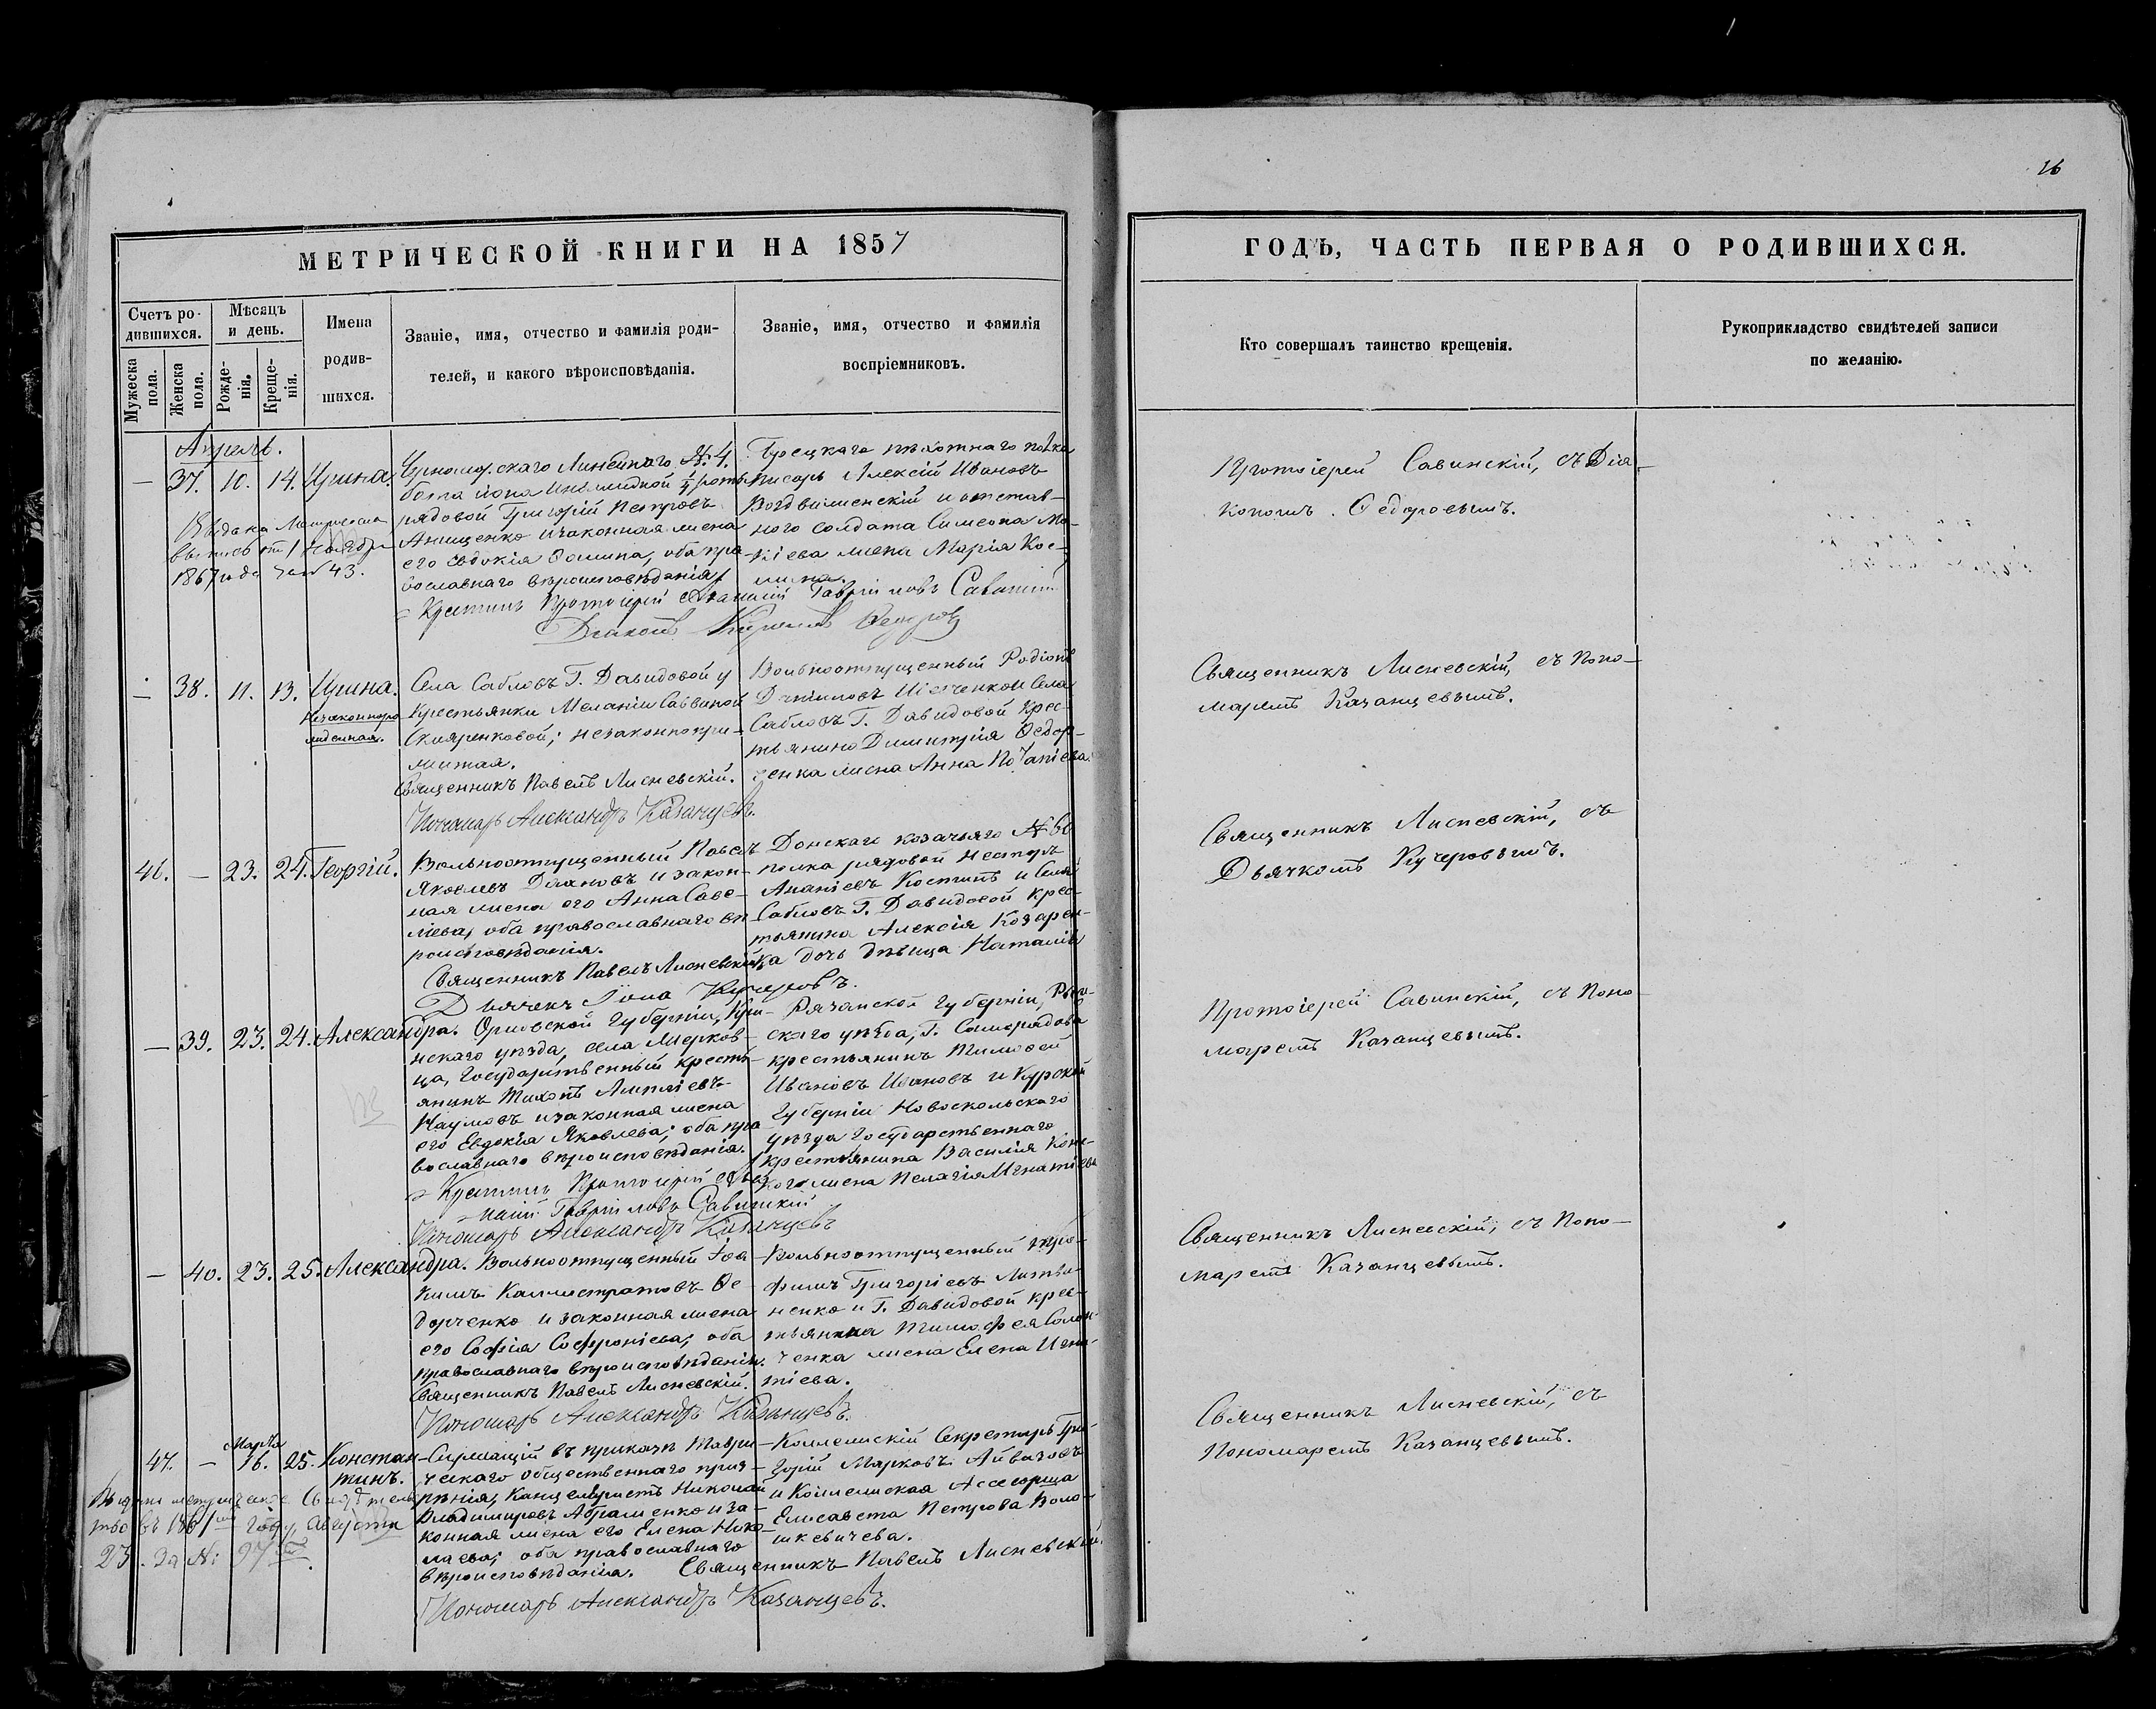 16
МЕТРИЧЕСКОЙ КНИГИ НА 1857
ГОДЪ, ЧАСТЬ ПЕРВАЯ О РОДИВШИХСЯ.
Счетъ ро-
дившихся.
Мужеска
пола.
Женска
пола.
Мѣсяцъ
и день.
Рожде-
нія.
Креще-
нія.
Имена
родив-
шихся.
Званіе, имя, отчество и фамилія роди-
телей, и какого вѣроисповѣданія.
Званіе, имя, отчество и фамилія
воспріемниковъ.
Кто совершалъ таинство крещенія.
Рукоприкладство свидѣтелей записи
по желанію.
Апрель.
— 37. 10. 14. Ирина.
Выдана Метрическая
выпись 1 Ноября
1867 года за № 43.
Черноморскаго Линейнаго № 4.
рядовой Григорій Петровъ
Анищенко и законная жена
его Евдокія Фомина, оба пра-
вославнаго вѣроисповѣданія
пѣхотнаго полка
писарь Алексій Ивановъ
Воздвиженскій и отстав-
ного солдата Симеона Мо-
кіева жена Марія Кос-
мина.
Крестилъ Протоіерей Афанасій Гавріиловъ Савинскій
Діаконъ Федоровъ
Протоіерей Савинскій, съ Діа-
кономъ Федоровымъ.
— 38. 11. 13. Ирина.
Незаконноро-
жденная.
Села Сабловъ Г. Давидовой у
крестьянки Меланіи Саввиной
Скляренковой; незаконнопри-
житая.
Священникъ Павелъ Лисневскій.
Пономарь Александръ Казанцевъ.
Вольноотпущенный Родіонъ
Даниловъ Шевченко и Села
Сабловъ Г. Давидовой крес-
тьянина Димитрія Федор-
ченка жена Анна Потапіева.
Священникъ Лисневскій, съ Поно-
маремъ Казанцевымъ.
46. — 23. 24. Георгій.
Вольноотпущенный Павелъ
Яковлевъ и закон-
ная жена его Анна Саве-
ліева, оба православнаго вѣ-
роисповѣданія.
Священникъ Павелъ Лисневскій
Дьячекъ Іона Кучеровъ.
Донскаго козачьяго № 60
полка рядовой Несторъ
Ананіевъ Костинъ и Села
Сабловъ Г. Давидовой крес-
тьянина Алексія Козарен-
ка дочь дѣвица Наталія
Священникъ Лисневскій, съ
Дьячкомъ Кучеровымъ.
— 39. 23. 24. Александра.
Орловской Губерніи,
нскаго уѣзда, села
ца, Государственный кресть-
янинъ Тихонъ
Наумовъ и законная жена
его Евдокія Яковлева; оба пра-
вославнаго вѣроисповѣданія.
Крестилъ Протоіерей Афа-
насій Гавріиловъ Савинскій
Пономарь Александръ Казанцевъ
Рязанской Губерніи,
скаго уѣзда, Г.
крестьянинъ Тимофей
Ивановъ Ивановъ и Курской
Губерніи Новоскольскаго
уѣзда Государственнаго
крестьянина Василія
жена Пелагія Игнатіева
Протоіерей Савинскій, съ Поно-
маремъ Казанцевымъ.
— 40. 23. 25. Александра.
Вольноотпущенный Іоа-
кимъ Каллистратовъ Фе-
дорченко и законная жена
его Софія Софроніева; оба
православнаго вѣроисповѣданія.
Священникъ Павелъ Лисневскій.
Пономарь Александръ Казанцевъ.
Вольноотпущенный Тро-
фимъ Григоріевъ Литви-
ненко и Г. Давидовой крес-
тьянина Тимофея Солон-
ченка жена Елена Игна-
тіева.
Священникъ Лисневскій, съ Поно-
маремъ Казанцевымъ.
47. — Марта 16. 25. Констан-
тинъ.
Выдано метрическое Свидѣтель-
ство въ году Августа
23. за № 97
Служащій въ приказѣ Таври-
ческаго общественнаго приз-
рѣнія, Канцеляристъ Николай
Владимировъ Абраменко и за-
конная жена его Елена Нико-
лаева; оба православнаго
вѣроисповѣданія.
Коллежскій Секретарь Гри-
горій Марковъ Айвазовъ
и Коллежская Ассесорша
Елисавета Петрова Воло-
шкевичева.
Священникъ Павелъ Лисневскій.
Пономарь Александръ Казанцевъ.
Священникъ Лисневскій, съ
Пономаремъ Казанцевымъ.